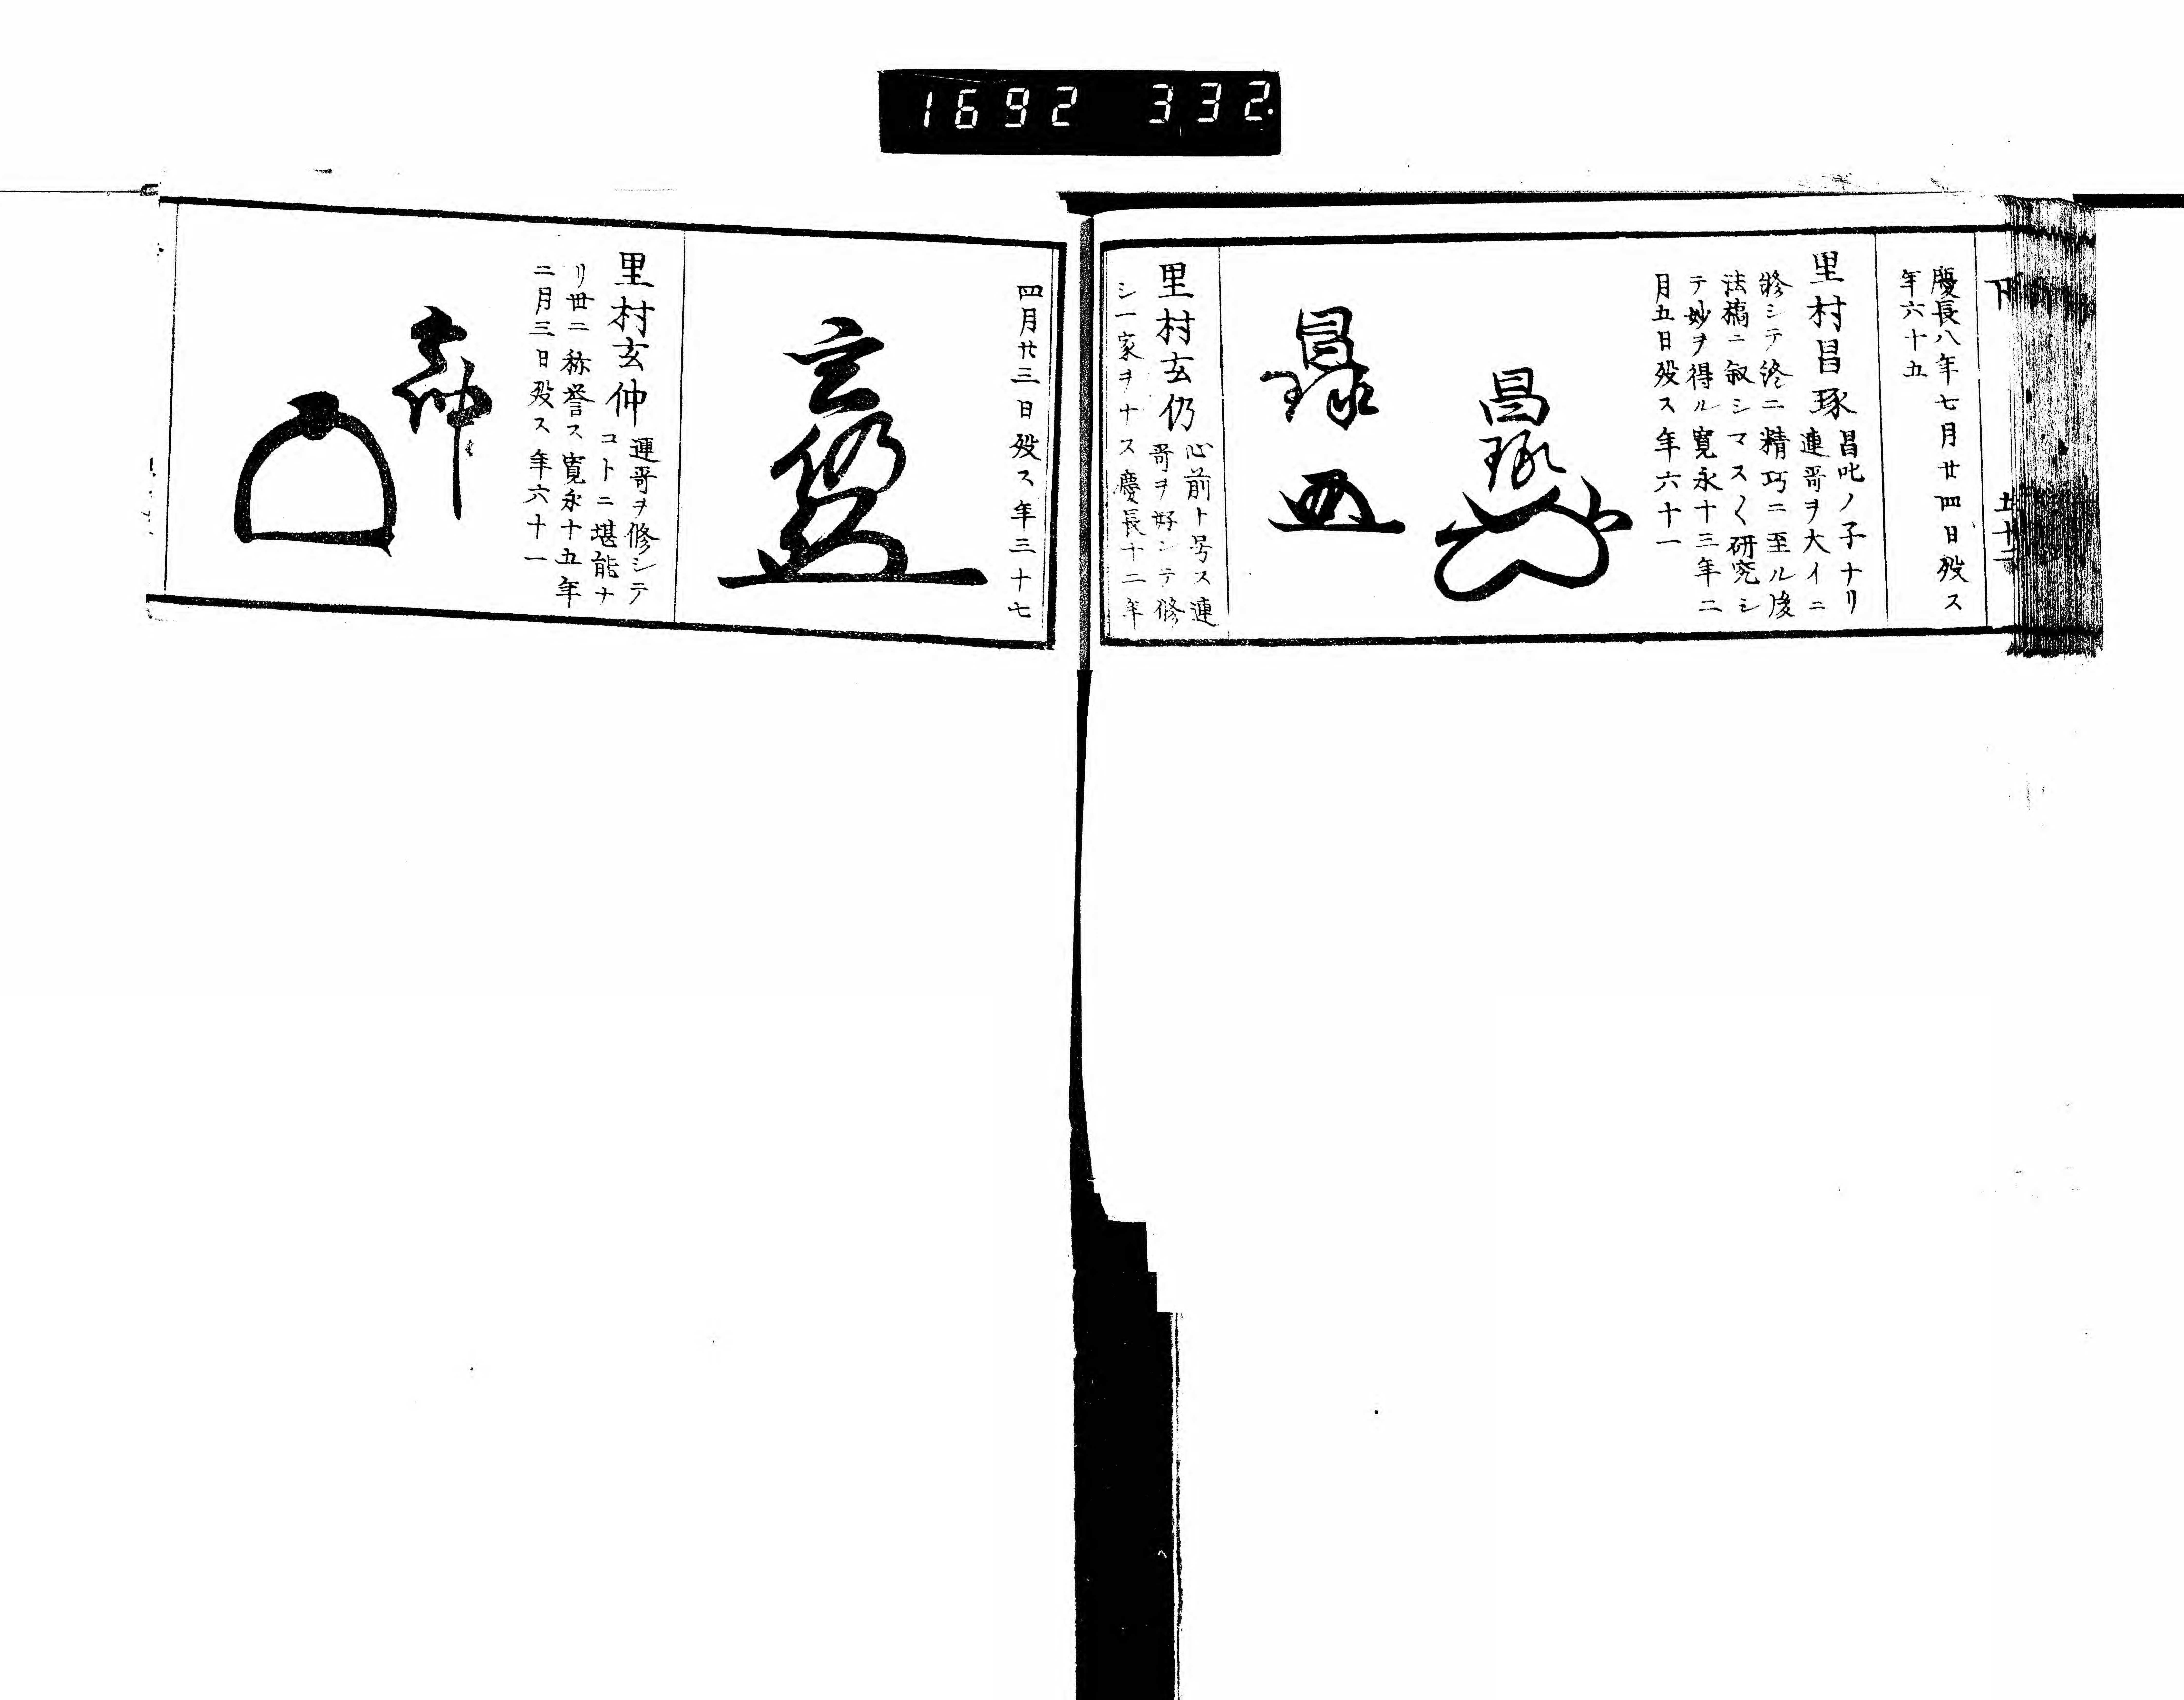 1692 332
下
慶長八年七月廿四日歿ス
年六十五
里村昌琢
昌叱ノ子ナリ
連哥ヲ大イニ
修シテ終ニ精巧ニ至ル後
法橋ニ叙シマス〱研究シ
テ妙ヲ得ル寛永十三年二
月五日歿ス年六十一
昌琢
里村玄仍
心前ト号ス連
哥ヲ好ンテ修
シ一家ヲナス慶長十二年
四月廿三日歿ス年三十七
玄仍
里村玄仲
連哥ヲ修シテ
コトニ堪能ナ
リ世ニ称誉ス寛永十五年
二月三日歿ス年六十一
玄仲